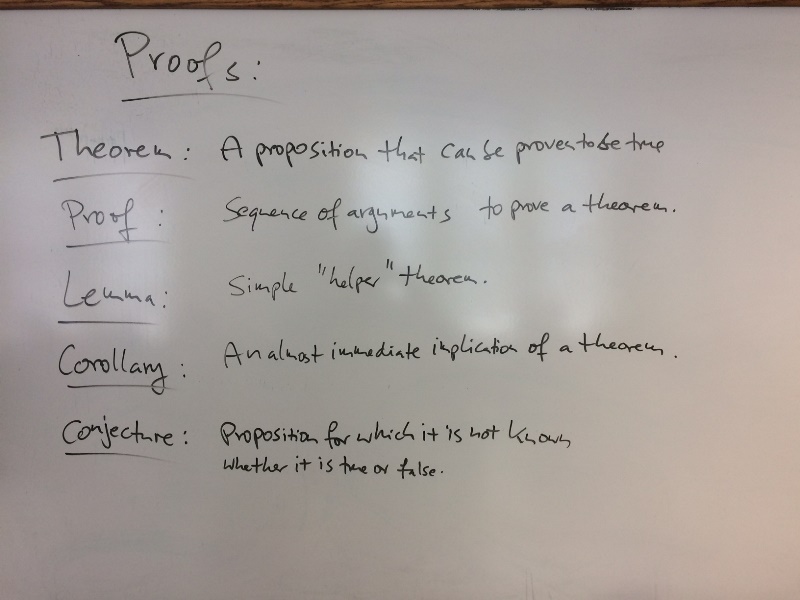 Proofs:
Theorem: A proposition that can be proven to be true
Proof: Sequence of arguments to prove a theorem.
Lemma: Simple "helper" theorem.
Corollary: An almost immediate implication of a theorem.
Conjecture: Proposition for which it is not known
whether it is true or false.